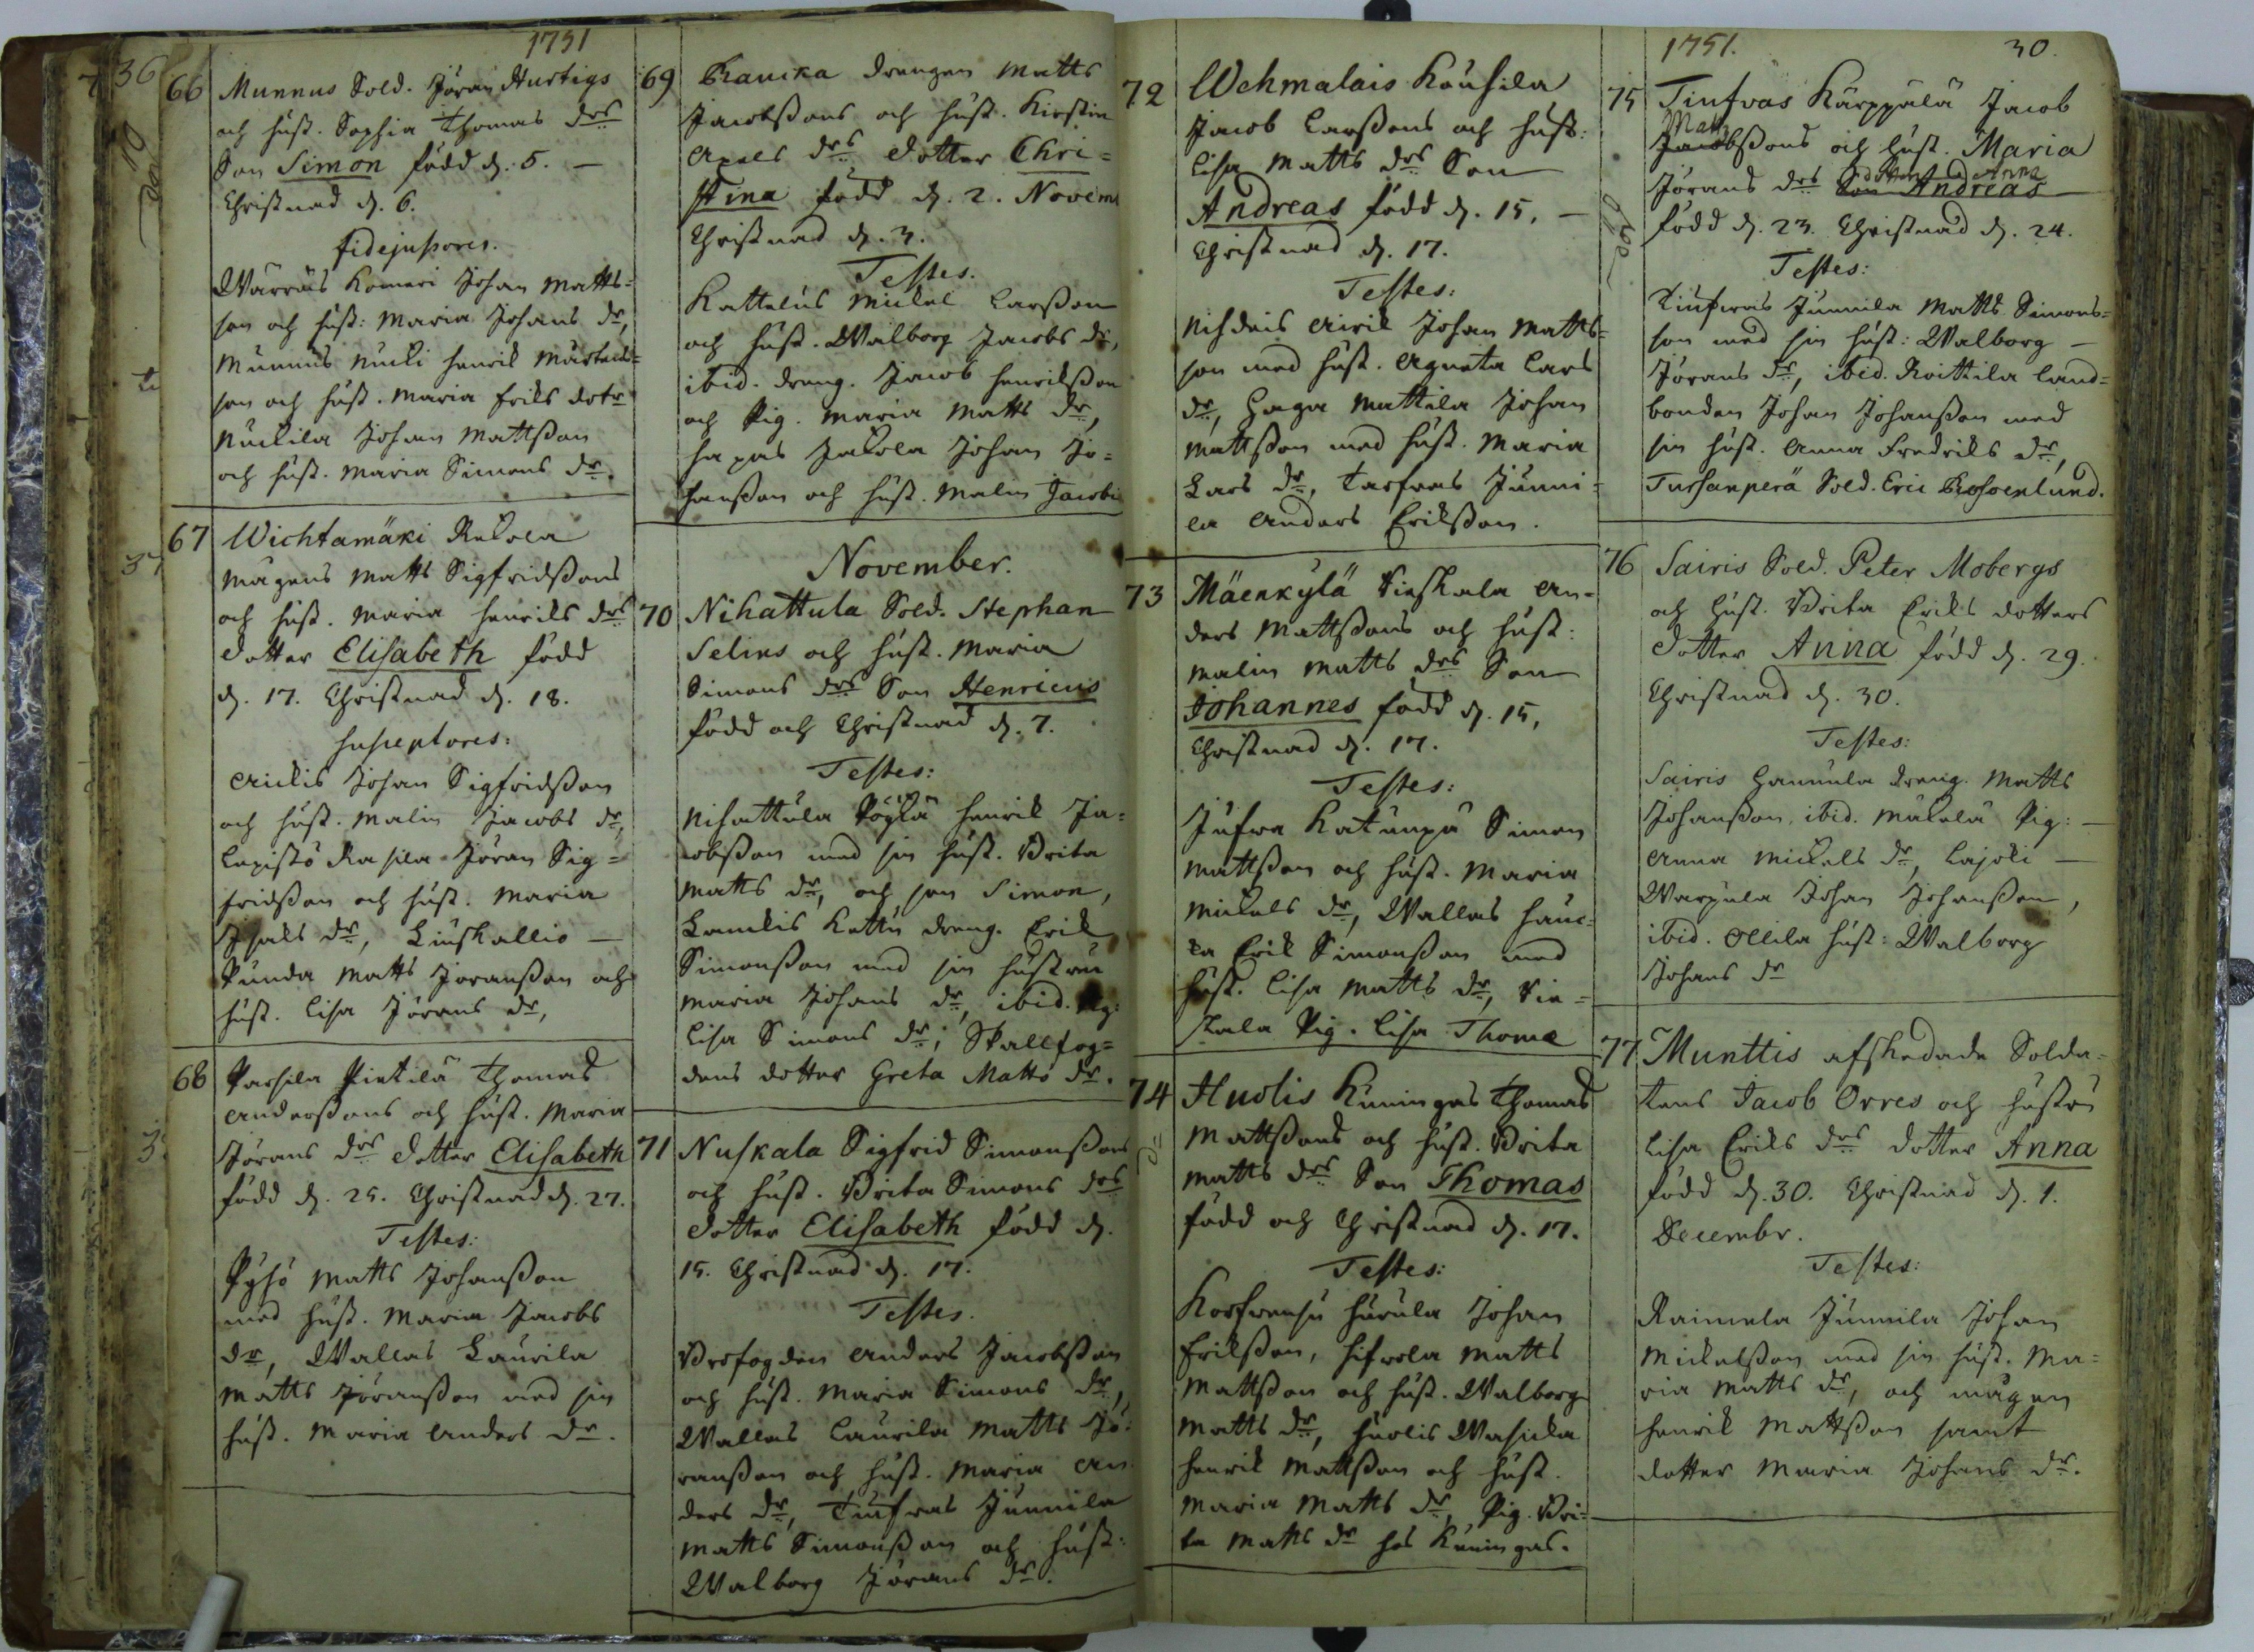 1751
66 Munnus Sold. Jöran Hurtigs
och hust. Sophia Thomas drs
Son Simon född d. 5. —
Christnad d. 6.
fidejussores.
Wärräis Komeri Johan Matts=
son och hust: Maria Johans dr,
Munnus Nucki Henrik Mårtens=
son och hust. Maria Eriks dotr
Nuckila Johan Mattsson
och hust. Maria Simons dr.
67 Wichtamäki
mågens Matts Sigfridssons
och hust. Maria Henriks drs
dotter Elisabeth född
d. 17. Christnad d. 18.
Susceptores:
Johan Sigfridsson
och hust. Malin Jacobs dr,
Lepistö Jöran Sig=
fridsson och hust. Maria
dr, Liuskallio —
Punda Matts Jöransson och
hust. Lisa Jörans dr,
68 Parsila Pietilä Thomas
Anderssons och hust. Maria
Jörans drs dotter Elisabeth
född d. 25. Christnad d. 27.
Testes:
Pyhö Matts Johansson
med hust. Maria Jacobs
dr, Wallas Laurila
Matts Jöransson med sin
hust. Maria Anders dr.
69 Rancka drengen Matts
Jacobssons och hust. Kirstin
Axels drs dotter Chri=
stina född d. 2. Novemb
Christnad d. 3.
Testes.
Kattelus Mickel Larsson
och hust. Walborg Jacobs dr,
ibid. dreng. Jacob Henriksson
och Pig. Maria Matts dr,
Johan Jo=
hansson och hust. Malin Jacobi
November.
70 Nihattula Sold. Stephan
Selins och hust. Maria
Simons drs Son Henricus
född och Christnad d. 7.
Testes:
Nihattula Henrik Ja=
cobsson med sin hust. Brita
Matts dr, och son Simon,
Kattu dreng. Erik
Simonsson med sin hustru
Maria Johans dr, ibid. Pig:
Lisa Simons dr, Skallfog=
dens dotter Greta Matts dr.
71 Nuskala Sigfrid Simonssons
och hust. Brita Simons drs
dotter Elisabeth född d.
15. Christnad d. 17.
Testes.
Brofogden Anders Jacobsson
och hust. Maria Simons dr,
Wallas Laurila Matts Jö=
ransson och hust. Maria An
ders dr, Tiufvas Junnila
Matts Simonsson och hust:
Walborg Jörans dr.
72 Wehmalais Kouhila
Jacob Larssons och hust:
Lisa Matts drs Son
Andreas född d. 15. —
Christnad d. 17.
Testes:
Johan Matts=
son med hust. Agneta Lars
dr, Haga Mattila Johan
Mattsson med hust. Maria
Lars dr, Tarfvas Junni=
la Anders Eriksson.
73 Mäenkylä Vieskala An=
ders Mattssons och hust:
Malin Matts drs Son
Johannes född d. 15,
Christnad d. 17.
Testes:
Jufva Katunpä Simon
Mattsson och hust. Maria
Mickels dr, Wallas Hauc=
ka Erik Simonsson med
hust. Lisa Matts dr, Vie=
skala Pig. Lisa Thomæ
74 Huolis Kuningas Thomas
Mattssons och hust. Brita
Matts drs Son Thomas
född och Christnad d. 17.
Testes:
Hurula Johan
Eriksson, Matts
Mattsson och hust. Walborg
Matts dr, Huolis
Henrik Mattsson och hust.
Maria Matts dr, Pig. Bri=
ta Matts dr hos Kuningas.
1751. 30.
75 Tiufvas Kärppälä Jacob
Matts
Jacobssons och hust. Maria
dotter Anna
Jörans drs Son Andreas
född d. 23. Christnad d. 24.
Testes:
Tiufvas Junnila Matts Simons=
son med sin hust: Walborg —
Jörans dr, ibid. Roittila land=
bonden Johan Johansson med
sin hust. Anna Fredriks dr,
Tursanperä Sold. Eric Rosoenlund.
76 Sairis Sold. Peter Mobergs
och hust. Brita Eriks dotters
dotter Anna född d. 29.
Christnad d. 30.
Testes:
Sairis Hannula dreng. Matts
Johansson, ibid. Mäkelä Pig: —
Anna Mickels dr, Lajoki —
Warpula Johan Johansson,
ibid. Ollila hust: Walborg
Johans dr
77 Munttis afskedade Solda=
tens Jacob Orres och hustru
Lisa Eriks drs dotter Anna
född d. 30. Christnad d. 1.
Decembr.
Testes:
Raimela Junnila Johan
Mickelsson med sin hust. Ma=
ria Matts dr, och mågen
Henrik Mattsson samt
dotter Maria Johans dr.